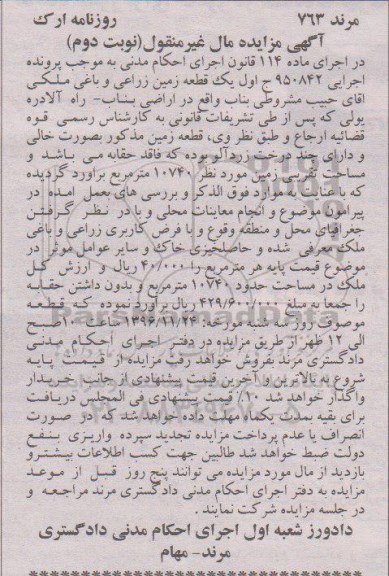 مرند ۷۶۳ روزنامه ارک
آگهی مزایده مال غیرمنقول(نوبت دوم)
در اجرای ماده ۱۱۴ قانون اجرای احکام مدنی به موجب پرونده
اجرایی ۹۵۰۸۴۲ ج اول یک قطعه زمین زراعی و باغی ملکی
آقای حبیب مشروطی بناب واقع در اراضی بناب- راه آلادره
یولی که پس از طی تشریفات قانونی به کارشناس رسمی قوه
قضائیه ارجاع و طبق نظر وی، قطعه زمین مذکور بصورت خالی
و دارای چند درخت زردآلو بوده که فاقد حقابه می باشد و
مساحت تقریبی زمین مورد نظر ۱۰۷۴۰ مترمربع برآورد گردیده
که با عنایت به موارد فوق الذکر و بررسی های بعمل آمده در
پیرامون موضوع و انجام معاینات محلی و با در نظر گرفتن
جغرافیای محل و منطقه وقوع و با فرض کاربری زراعی و باغی
ملک معرفی شده و حاصلخیزی خاک و سایر عوامل موثر در
موضوع قیمت پایه هر مترمربع را ۴۰/۰۰۰ ریال و ارزش کل
ملک در مساحت حدود ۱۰۷۴۰ مترمربع و بدون داشتن حقابه
را جمعا به مبلغ ۴۲۹/۶۰۰/۰۰۰ ریال برآورد نموده که قطعه
موصوف روز سه شنبه مورخه: ۱۳۹۶/۱۱/۲۴ ساعت ۱۰صبح
الی ۱۲ ظهر از طریق مزایده در دفتر اجرای احکام مدنی
دادگستری مرند بفروش خواهد رفت مزایده از قیمت پایه
شروع به بالاترین و آخرین قیمت پیشنهادی از جانب خریدار
واگذار خواهد شد ۱۰٪ قیمت پیشنهادی فی المجلس دریافت
برای بقیه بمدت یکماه مهلت داده خواهد شد که در صورت
انصراف یا عدم پرداخت مزایده تجدید سپرده واریزی بنفع
دولت ضبط خواهد شد طالبین جهت کسب اطلاعات بیشترو
بازدید از مال مورد مزایده می توانند پنج روز قبل از موعد
مزایده به دفتر اجرای احکام مدنی دادگستری مرند مراجعه و
در جلسه مزایده شرکت نمایند .
دادورز شعبه اول اجرای احکام مدنی دادگستری
مرند- مهام
ParsNamadData